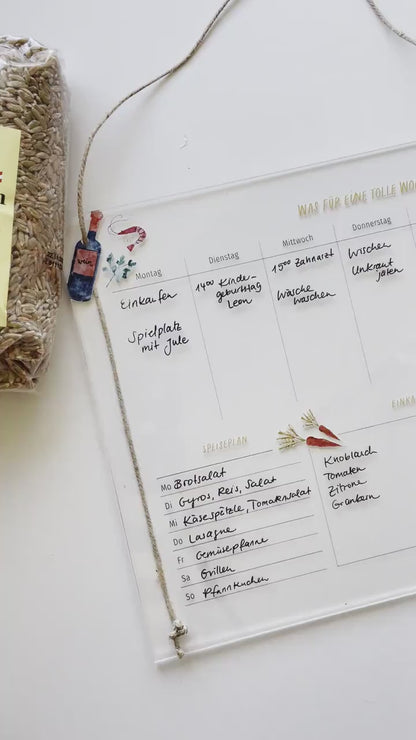 WAS FÜR EINE TOLLE WO
Montag
Einkaufen
Spielplatz
mit Jule
Dienstag
14⁰⁰ Kinder-
geburtstag
Leon
Mittwoch
15⁰⁰ Zahnarzt
Wäsche
waschen
Donnerstag
Wischen
Unkraut
jäten
wein
SPEISEPLAN
Mo Brotsalat
Di Gyros, Reis, Salat
Mi Käsespätzle, Tomatensalat
Do Lasagne
Fr Gemüsepfanne
Sa Grillen
So Pfannkuchen
EINKA
Knoblauch
Tomaten
Zitrone
Grünkern